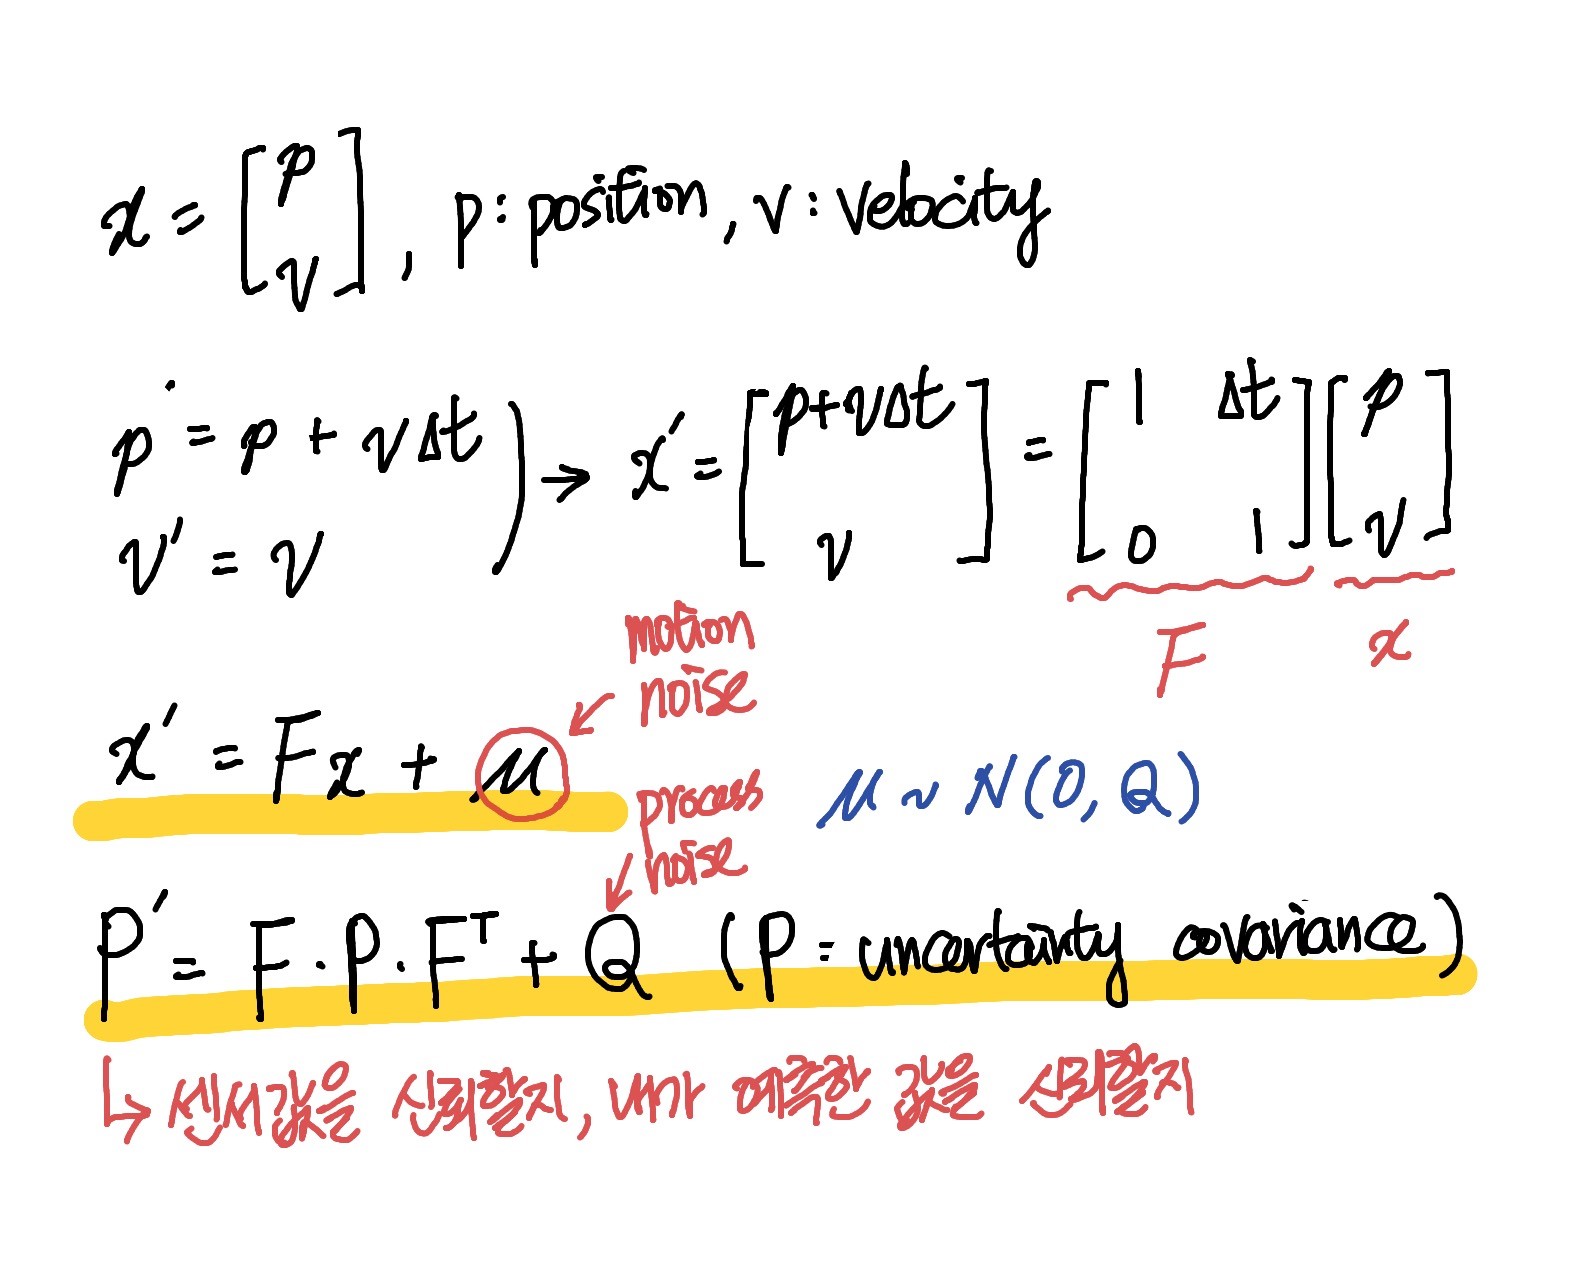 x = [p v], p : position, v : velocity
p' = p + vΔt
v' = v
→ x' = [p+vΔt v] = [1 Δt 0 1] [p v]
F x
motion noise
x' = Fx + μ
μ ~ N(0, Q)
process noise
P' = F · P · Fᵀ + Q (P = uncertainty covariance)
↳ 센서값을 신뢰할지, 내가 예측한 값을 신뢰할지